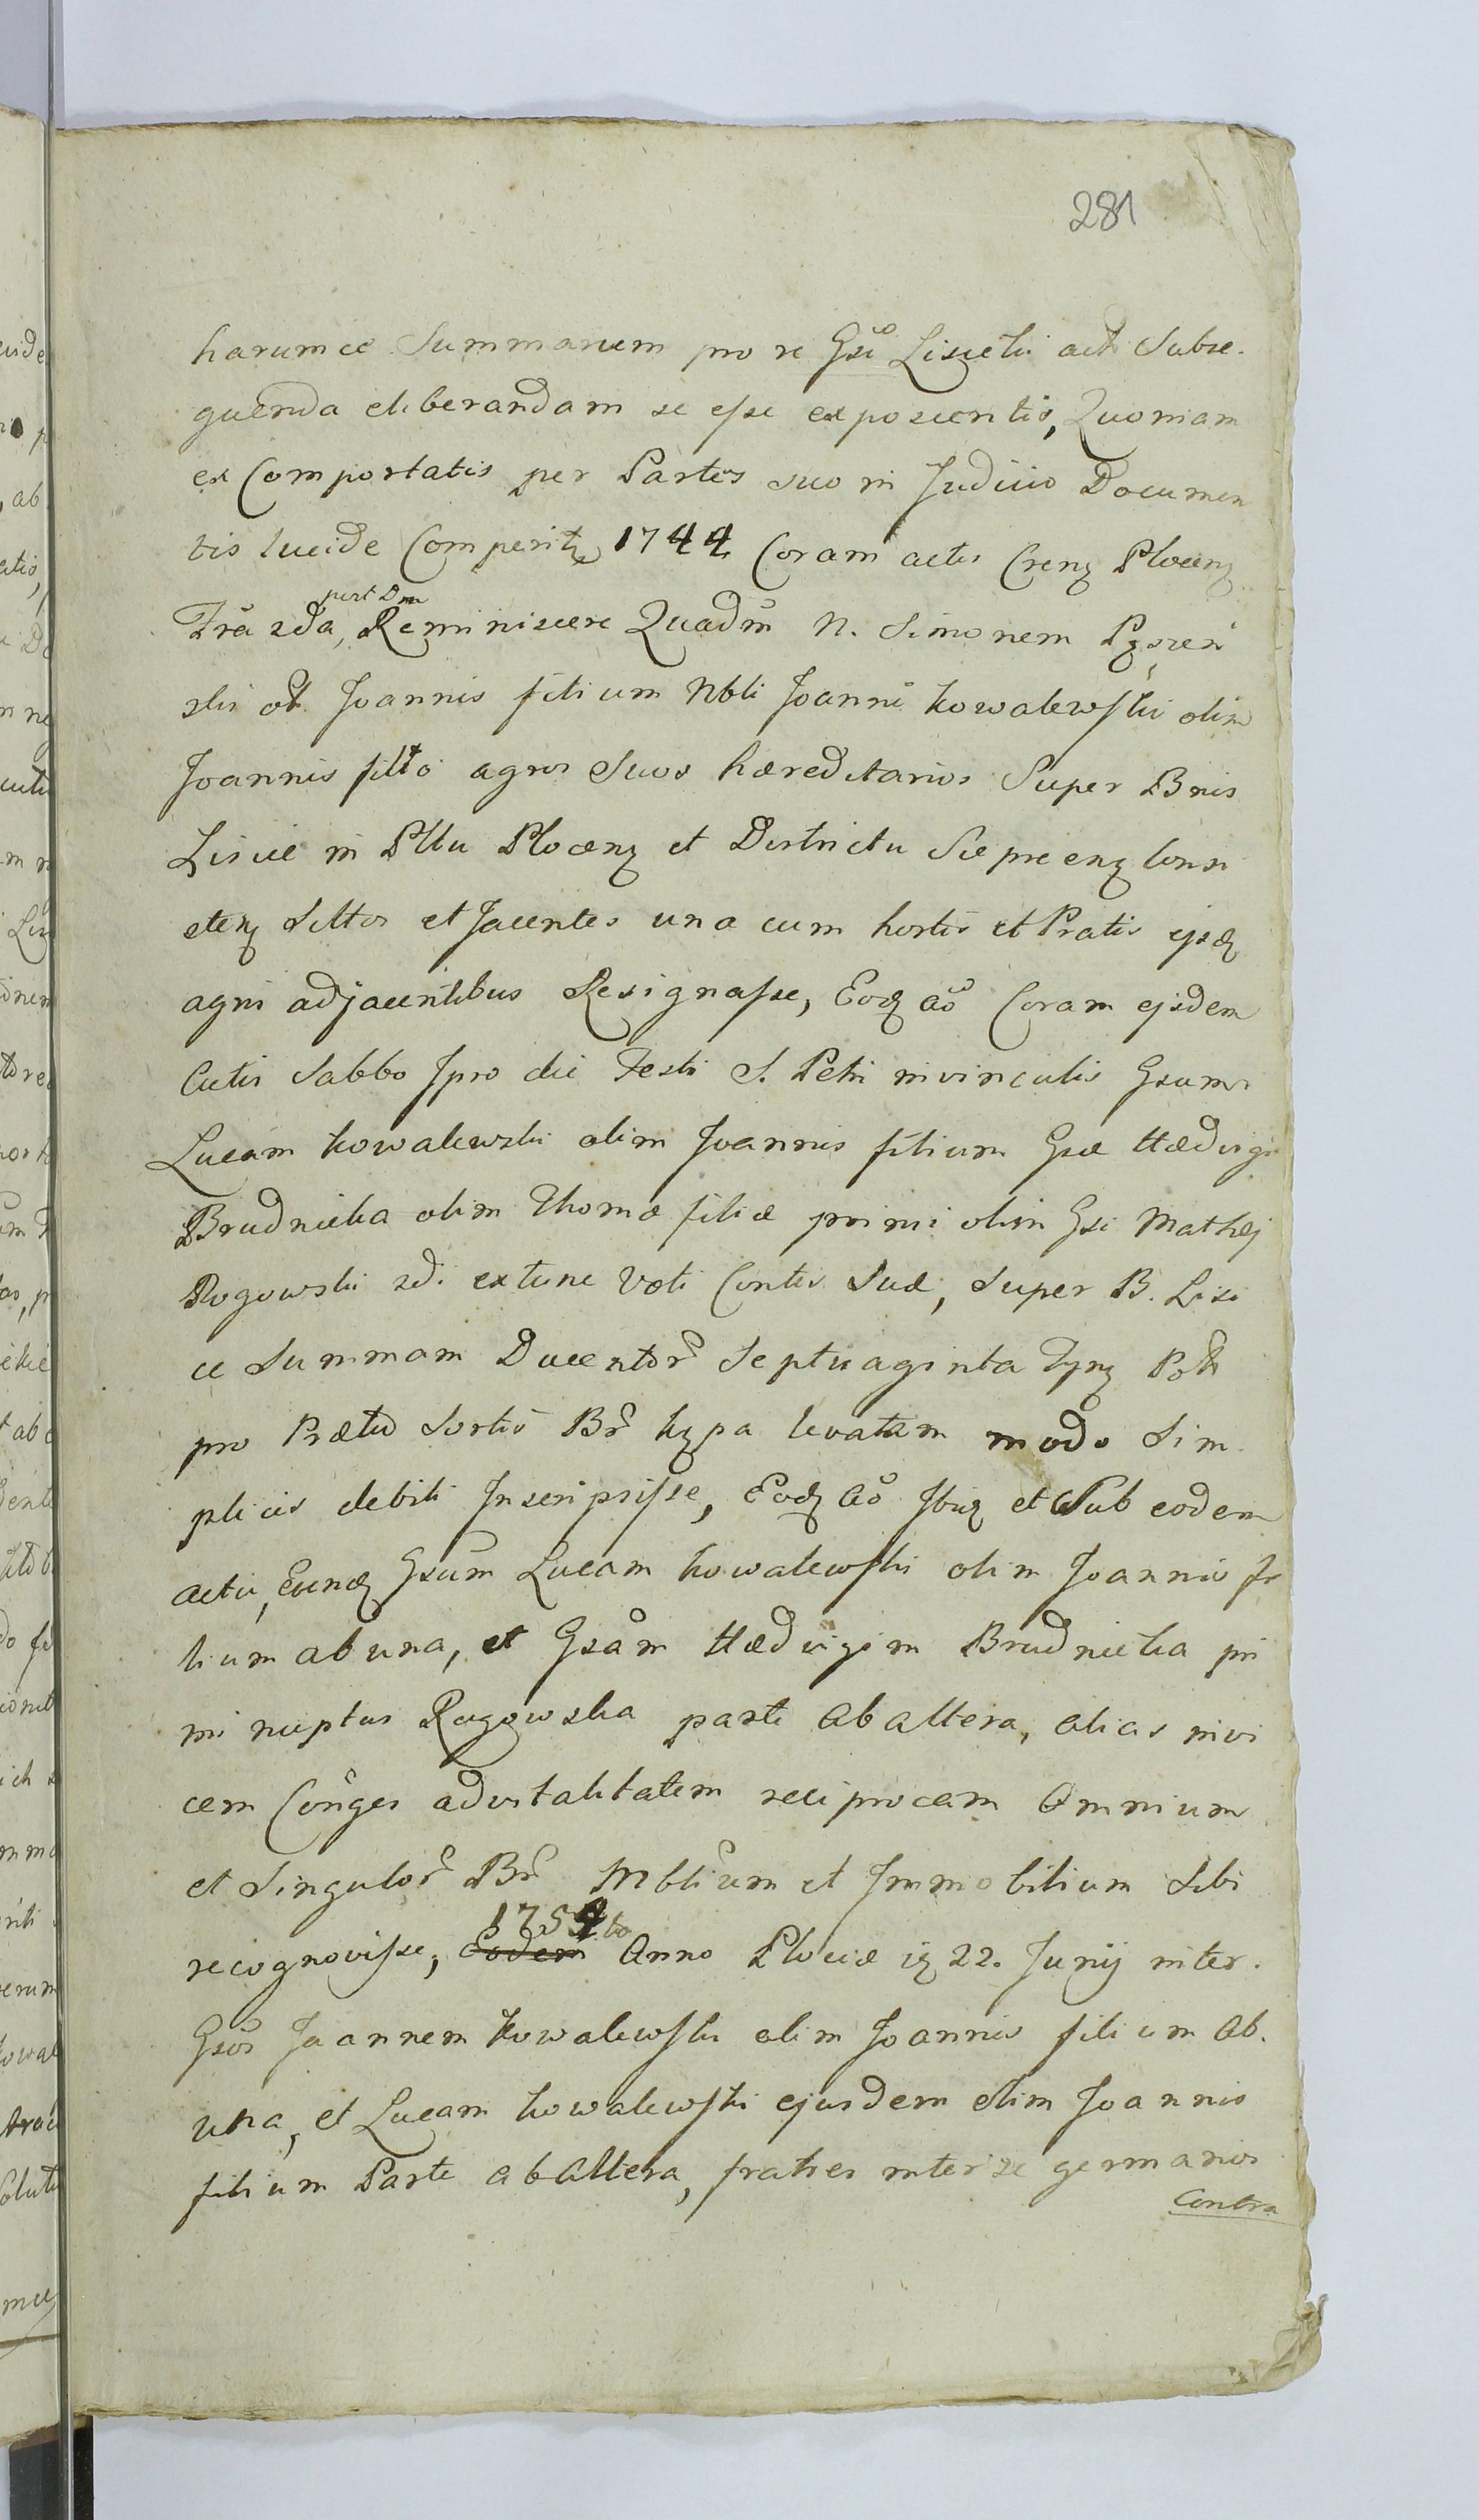 281
harumce Summarum pro re Gsi Lisicki act Subse-
quenda eliberandam se esse exposcentis, Quoniam
ex Comportatis per Partes suo in Judicio Documen
tis lucide Comperitz 1744 Coram actis Crenz Plocenz
post Dm
Fra 2da, Reminiscere Quadm N. Simonem
ski ol. Joannis filium Nbli Joanni Kowalewski olim
Joannis filio agros Suos haereditarios Super Bnis
Lisice in Pltu Plocenz et Districtu Sieprcenz Consi
stenz Sittos et Jacentes una cum hortis et Pratis ejsdz
agri adjacentibus Resignasse, Eodz Ao Coram ejsdem
Actis Sabbo Ipso die Festi S. Petri invinculis Gsum
Lucam Kowalewski olim Joannis filium Gsae Haedvigi
Brudnicka olim Thomae filiae primi olim Gsi Mathej
Rogowski 2di extunc Voti Contis Suae, Super B. Lisi
ce Summam Ducentor Septuaginta Tynz Poli
pro Praetio Sortis Br hypa levatam modo Sim
plicis debiti Inscripsisse, Eodz Ao Ibiz et Sub eodem
actu, Eundz Gsum Lucam Kowalewski olim Joannis fi
lium ab una, et Gsam Haedvigim Brudnicka pri
mi nuptus Rogowska parte ab altera, alias invi
cem Conges advitalitatem reciprocam Omnium
et Singulor Br Mblium et Immobilium Sibi
1754to
recognovisse, Eodem Anno Plociae iz 22. Junij inter.
Gsos Joannem Kowalewski olim Joannis filium Ab.
una, et Lucam Kowalewski ejusdem olim Joannis
filium Parte ab Altera, fratres inter se germanos
Contra